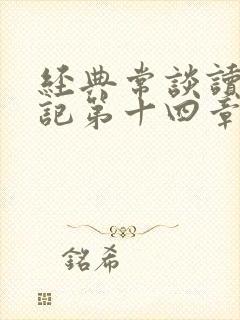 經典常談讀
記第十四章
銘希